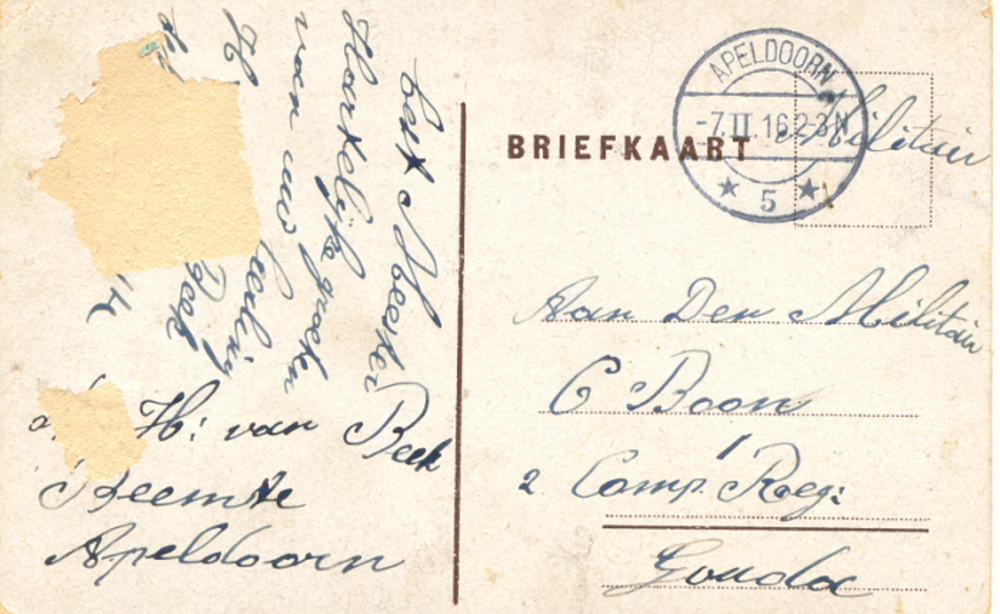 best Meester
Hartelijke groeten
van uw leerling
H Beek
H: van Beek
Beemte
Apeldoorn
BRIEFKAART
APELDOORN
-7.II.16 2-3N
5
Militair
Aan Den Militair
C Boon
2 Comp. 1 Reg:
Gouda